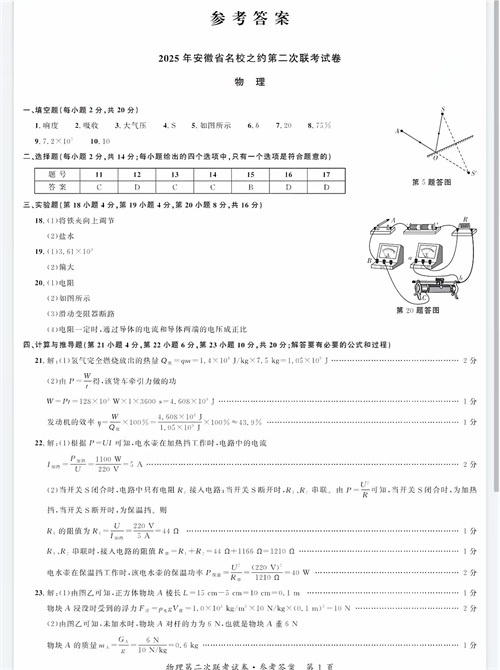 参考答案
2025年安徽省名校之约第二次联考试卷
物 理
一、填空题(每小题2分,共20分)
1. 响度 2. 吸收 3. 大气压 4. S 5. 如图所示 6. 6 7. 20 8. 75%
9. 7.2×10⁵ 10. 10
第5题答图
二、选择题(每小题2分,共14分;每小题给出的四个选项中,只有一个选项是符合题意的)
题号 11 12 13 14 15 16 17
答案 C D C C B D D
三、实验题(第18小题4分,第19小题4分,第20小题8分,共16分)
18. (1)将铁夹向上调节
(2)盐水
19. (1)3.61×10³
(2)偏大
20. (1)电阻
(2)如图所示
(3)滑动变阻器断路
(4)电阻一定时,通过导体的电流和导体两端的电压成正比
第20题答图
四、计算与推导题(第21小题4分,第22小题6分,第23小题10分,共20分;解答要有必要的公式和过程)
21. 解:(1)氢气完全燃烧放出的热量Q放=qm=1.4×10⁸ J/kg×7.5 kg=1.05×10⁹ J 2分
(2)由P=W/t得,该货车牵引力做的功
W=Pt=128×10³ W×1×3600 s=4.608×10⁸ J 1分
发动机的效率η=W/Q放×100%=4.608×10⁸ J/1.05×10⁹ J×100%≈43.9% 1分
22. 解:(1)根据P=UI可知,电水壶在加热挡工作时,电路中的电流
I加热=P加热/U=1100 W/220 V=5 A 2分
(2)当开关S闭合时,电路中只有电阻R₁接入电路;当开关S断开时,R₁、R₂串联。由P=U²/R可知,当开关S闭合时,为加热
挡,当开关S断开时,为保温挡。则
R₁的阻值为R₁=U/I加热=220 V/5 A=44 Ω 1分
R₁、R₂串联时,接入电路的阻值R串=R₁+R₂=44 Ω+1166 Ω=1210 Ω 1分
电水壶在保温挡工作时,该电水壶的保温功率P保温=U²/R串=(220 V)²/1210 Ω=40 W 2分
23. 解:(1)由图乙可知,正方体物块A棱长L=15 cm-5 cm=10 cm=0.1 m 1分
物块A浸没时受到的浮力F浮=ρ水gV排=1.0×10³ kg/m³×10 N/kg×(0.1 m)³=10 N 2分
(2)由图乙可知,未加水时,物块A对杆的力为6 N,也就是物块A重6 N
物块A的质量mA=GA/g=6 N/10 N/kg=0.6 kg 1分
物理第二次联考试卷·参考答案 第1页